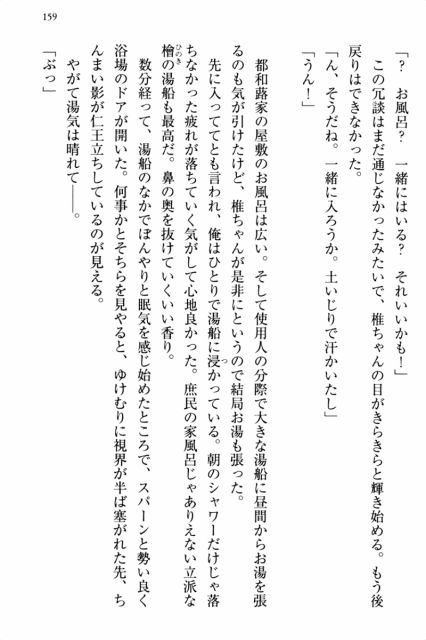 159
「？　お風呂？　一緒にはいる？　それいいかも！」
　この冗談はまだ通じなかったみたいで、椎ちゃんの目がきらきらと輝き始める。もう後
戻りはできなかった。
「ん、そうだね。一緒に入ろうか。土いじりで汗かいたし」
「うん！」
　都和蕗家の屋敷のお風呂は広い。そして使用人の分際で大きな湯船に昼間からお湯を張
るのも気が引けたけど、椎ちゃんが是非にというので結局お湯も張った。
　先に入っててとも言われ、俺はひとりで湯船に浸かっている。朝のシャワーだけじゃ落
ちなかった疲れが落ちていく気がして心地良かった。庶民の家風呂じゃありえない立派な
檜の湯船も最高だ。鼻の奥を抜けていくいい香り。
　数分経って、湯船のなかでぼんやりと眠気を感じ始めたところで、スパーンと勢い良く
浴場のドアが開いた。何事かとそちらを見やると、ゆけむりに視界が半ば塞がれた先、ち
んまい影が仁王立ちしているのが見える。
　やがて湯気は晴れて――。
「ぶっ」